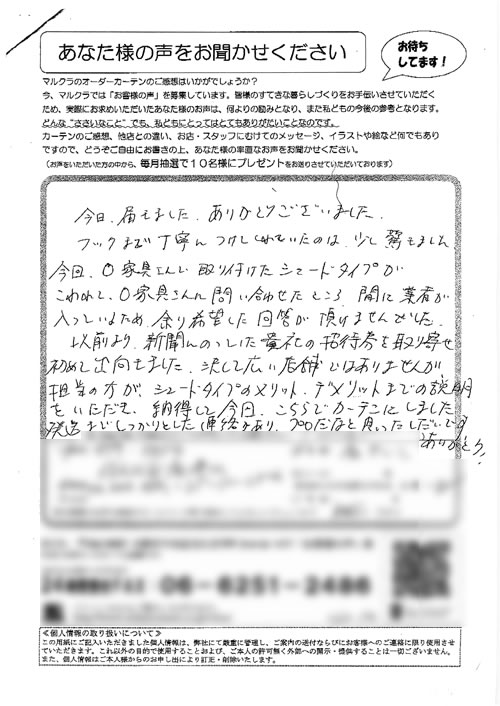 あなた様の声をお聞かせください
お待ち
してます!
マルクラのオーダーカーテンのご感想はいかがでしょうか?
今、マルクラでは「お客様の声」を募集しています。皆様のすてきな暮らしづくりをお手伝いさせていただく
ため、実際にお求めいただいたあなた様のお声は、何よりの励みとなり、また私どもの今後の参考となります。
どんな"ささいなこと"でも、私どもにとってはとてもありがたいことなのです。
カーテンのご感想、他店との違い、お店・スタッフにむけてのメッセージ、イラストや絵など何でもあり
ですので、どうぞご自由にお書きの上、あなた様の率直なお声をお聞かせください。
(お声をいただいた方の中から、毎月抽選で10名様にプレゼントをお送りさせていただいております)
今日、届きました。ありがとうございました。
フックまで丁寧につけてくれていたのは、少し驚きました
今回、〇家具さんで取り付けたシェードタイプが
こわれて、〇家具さんに問い合わせたところ、間に業者が
入っているため、余り希望した回答が頂けませんでした。
以前より、新聞にのっていた貴社の招待券を取り寄せ
初めて出向きました。決して広い店舗ではありませんが
担当の方が、シェードタイプのメリット、デメリットまでの説明
をいただき、納得して今回、こちらでカーテンにしました
発送までしっかりとした連絡があり、プロだなと思ったしだいです
ありがとう!
06-6251-2486
≪個人情報の取り扱いについて≫
この用紙にご記入いただきました個人情報は、弊社にて厳重に管理し、ご案内の送付ならびにお客様へのご連絡に限り使用させ
ていただきます。これ以外の目的で使用することおよび、ご本人の許可無く外部への開示・提供することは一切ございません。
また、個人情報はご本人様からのお申し出により訂正・削除いたします。